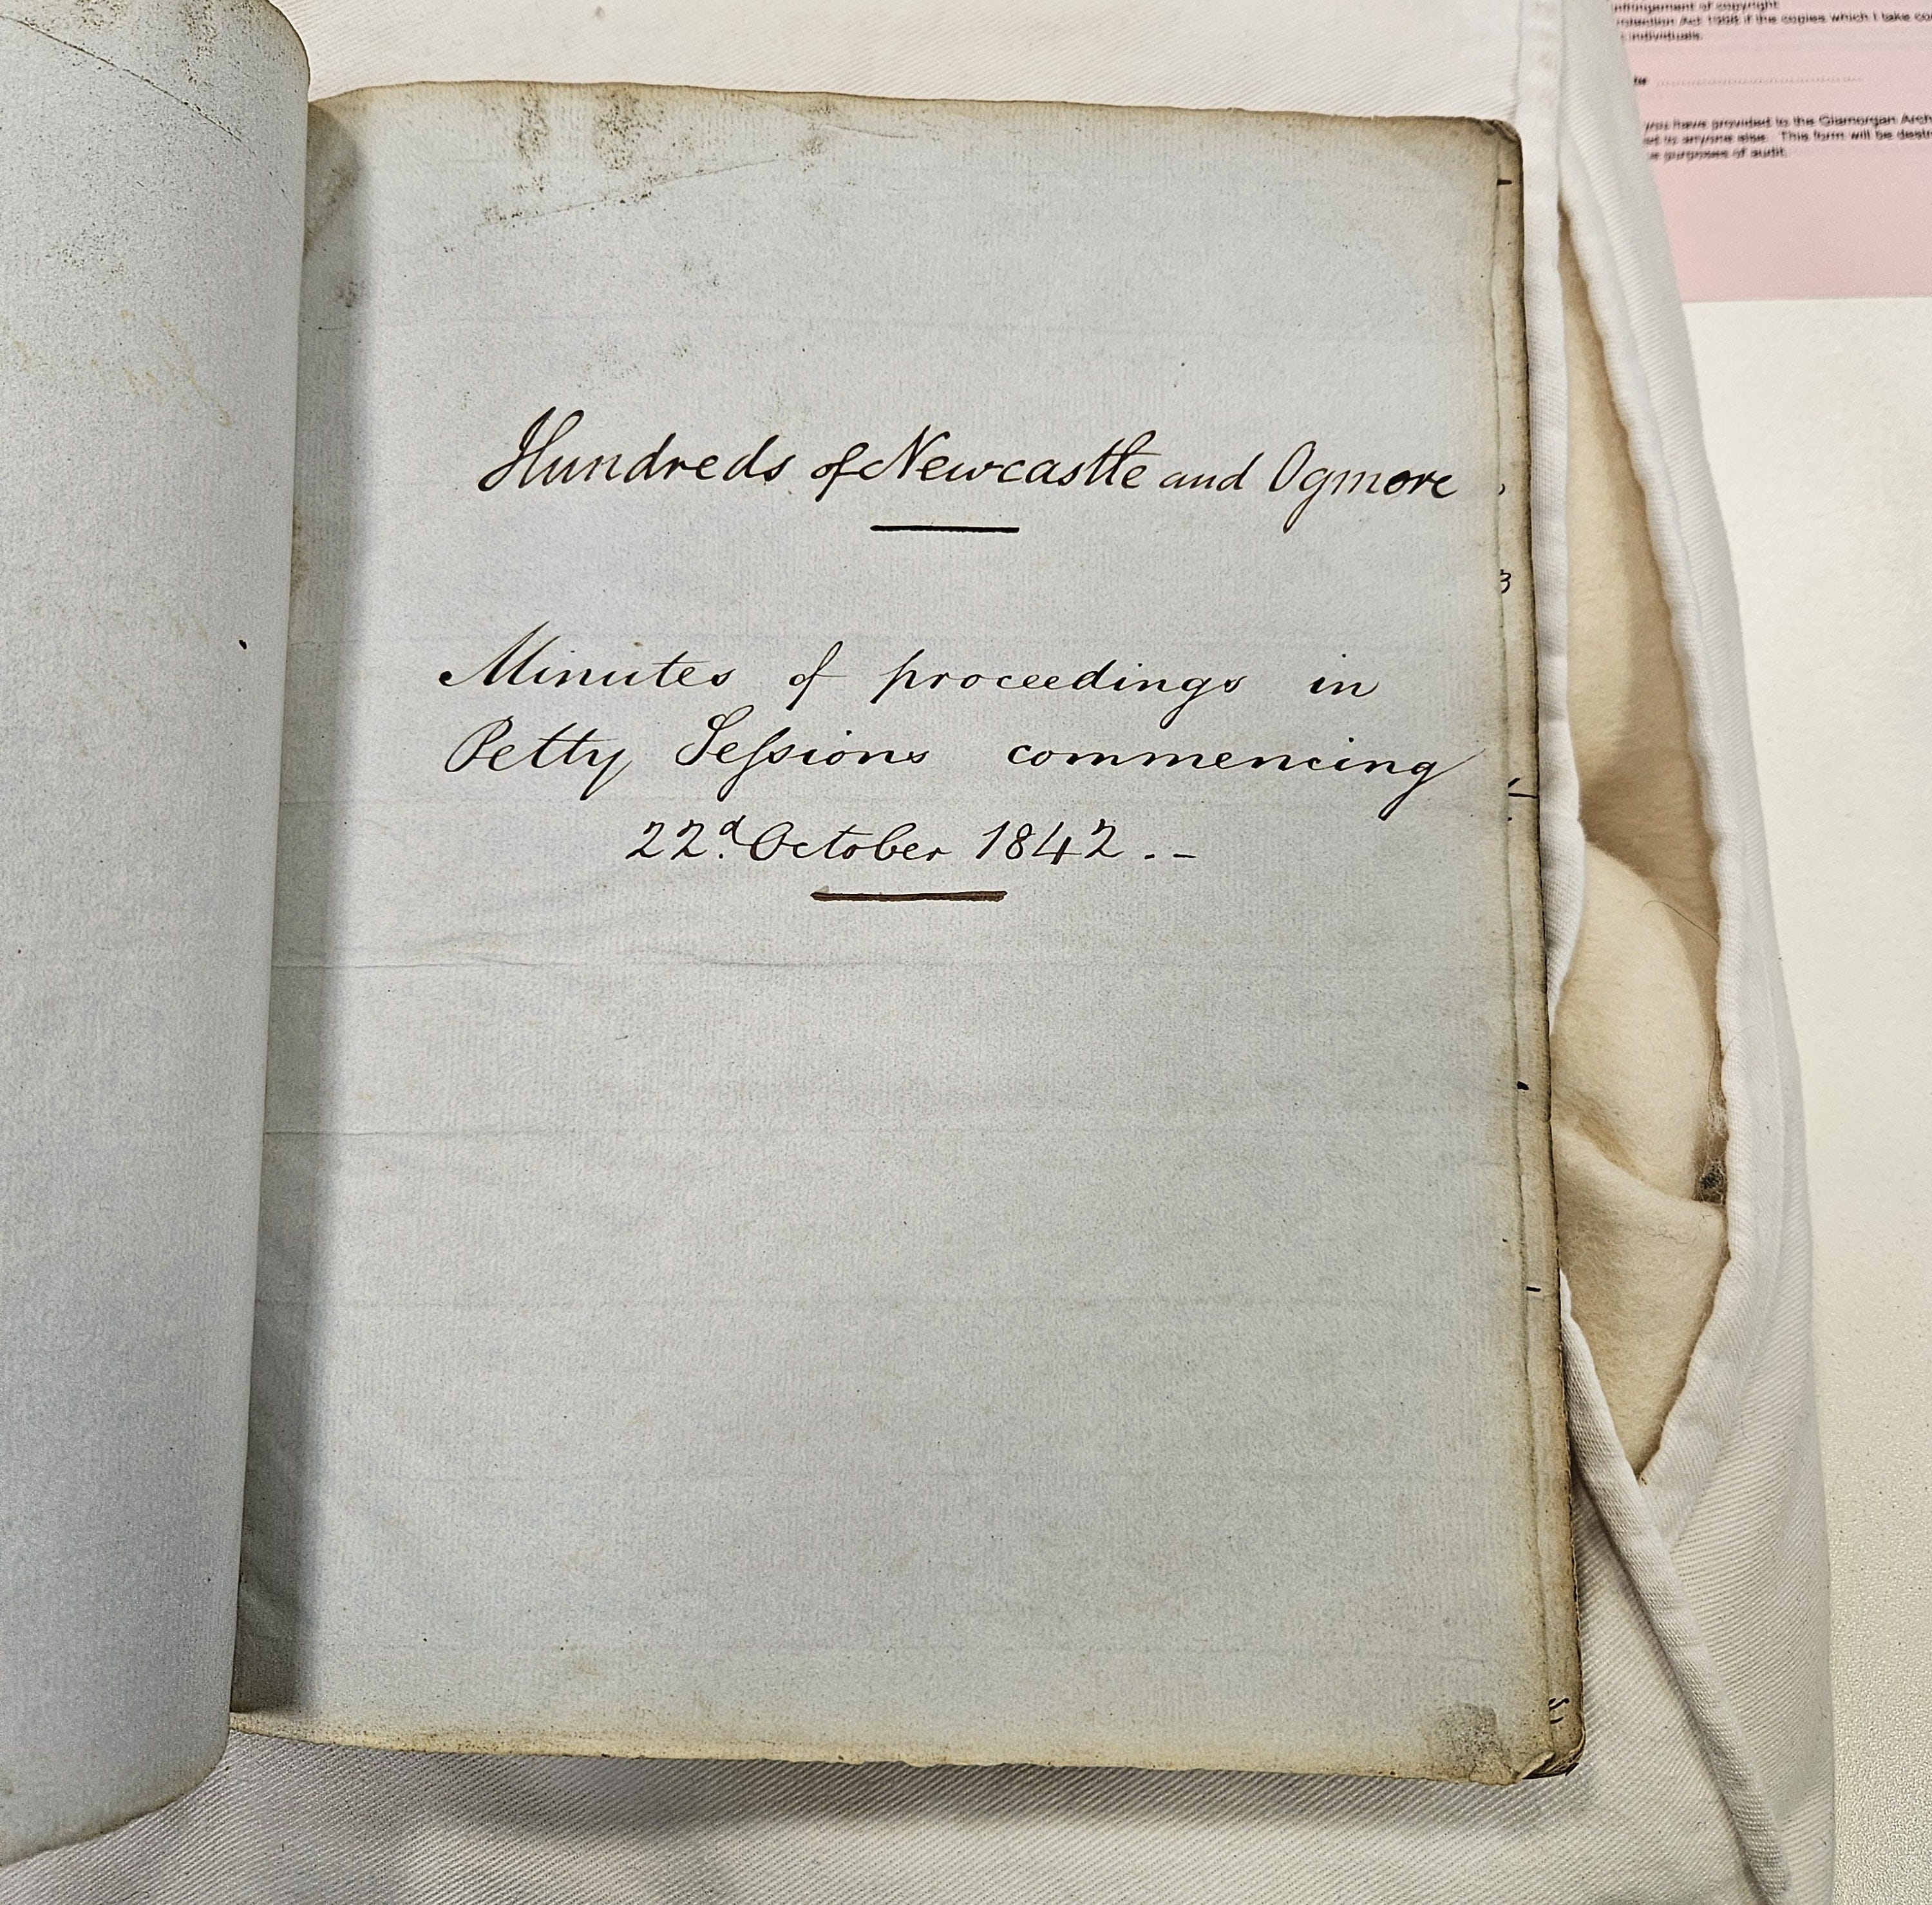 Hundreds of Newcastle and Ogmore
Minutes of proceedings in
Petty Seſsions commencing
22d. October 1842. -
infringement of copyright
rotection Act 1998 if the copies which I take co
individuals.
you have provided to the Glamorgan Arch
to anyone else. This form will be destr
purposes of audit.
3